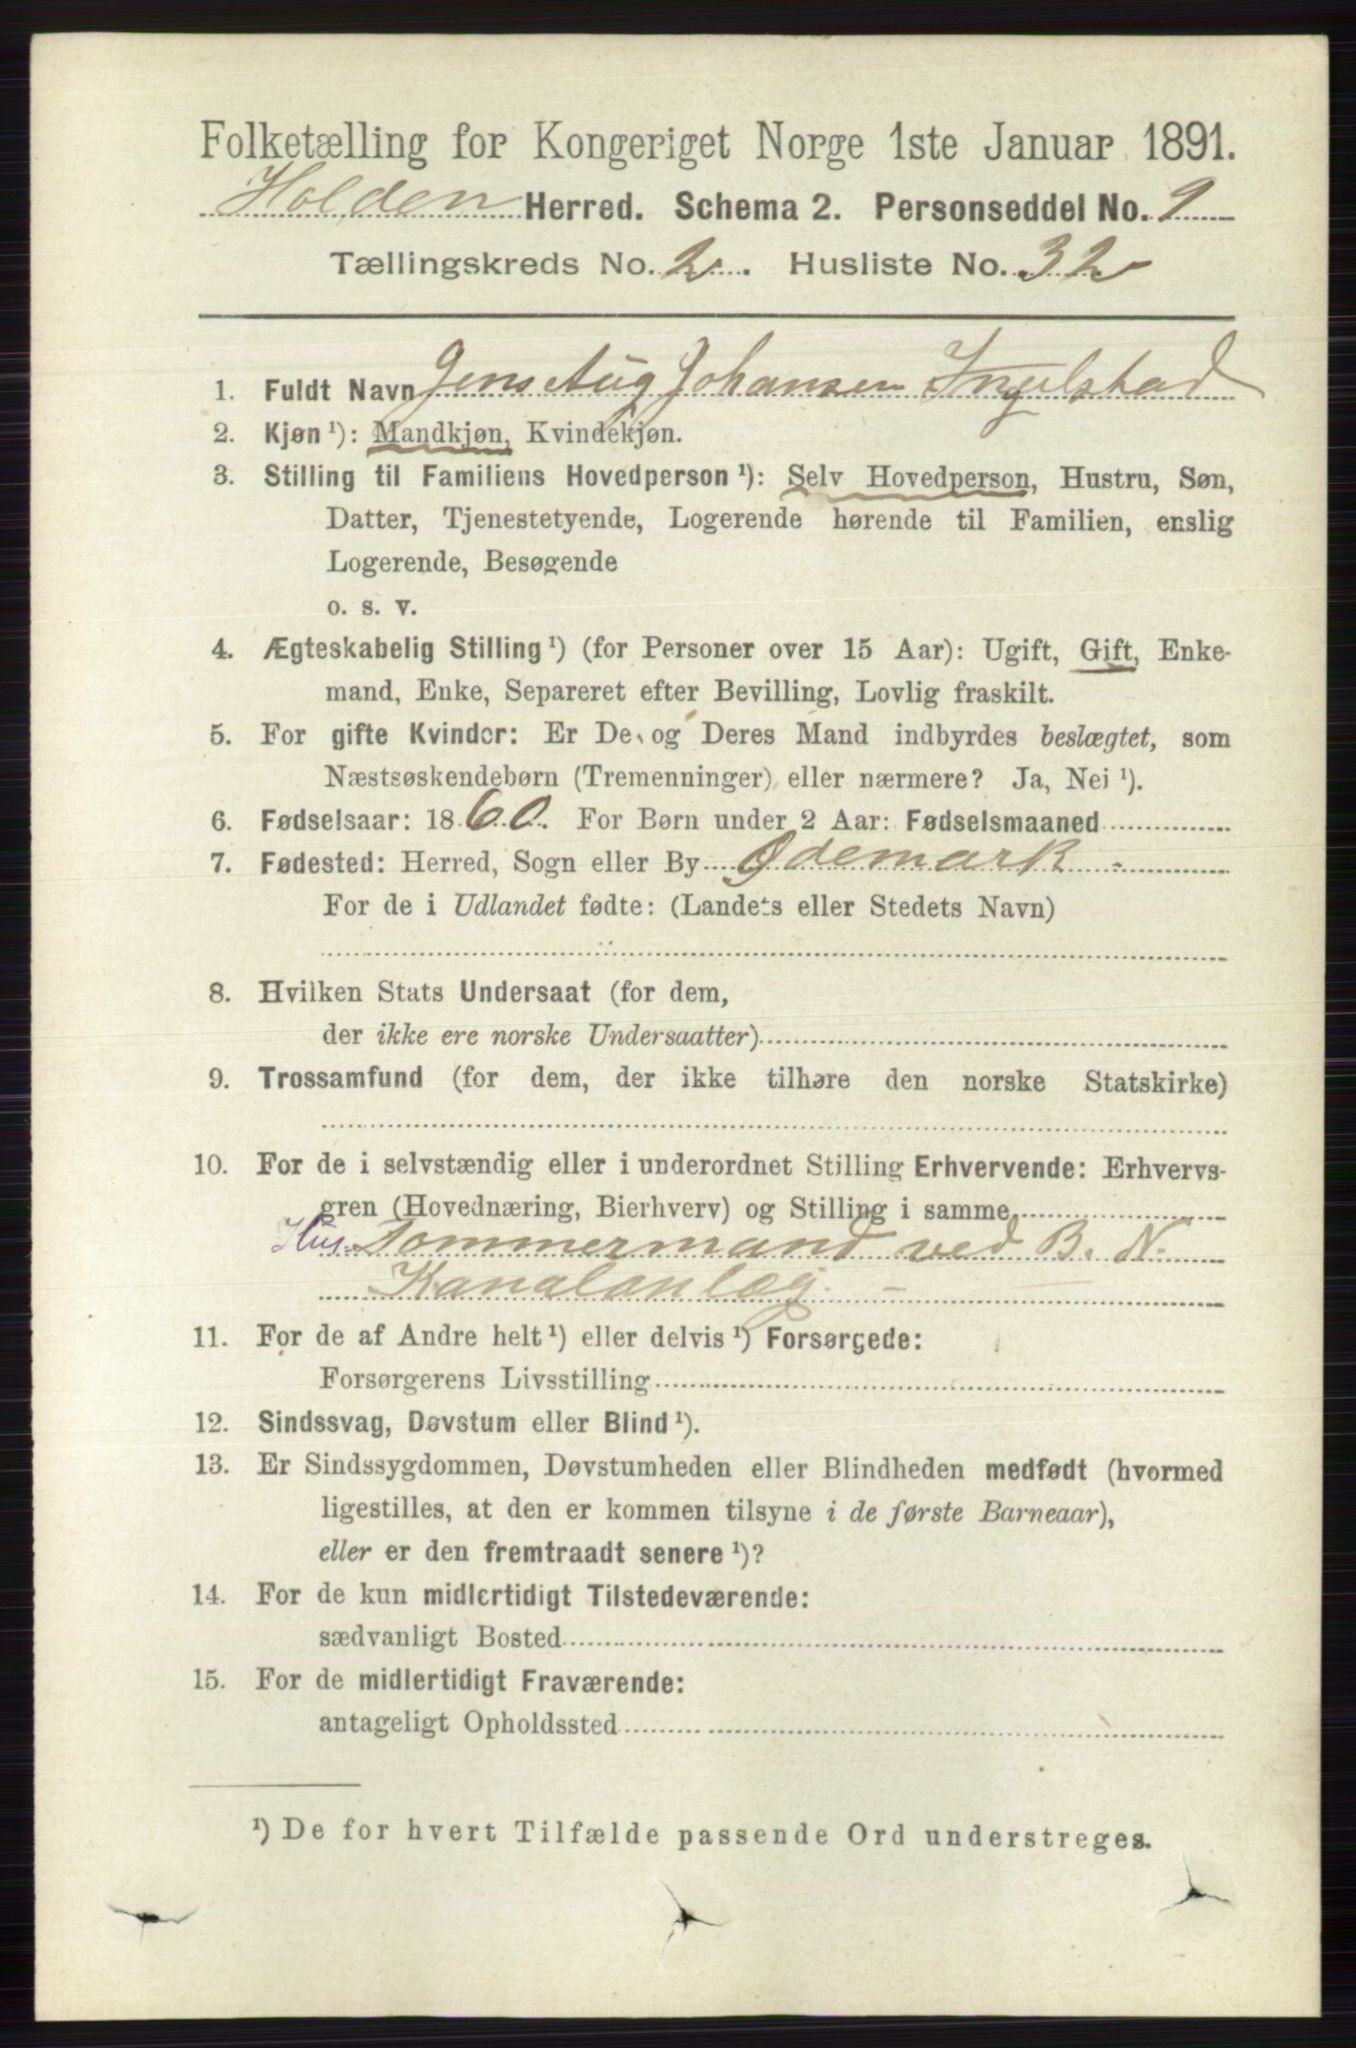 Folketælling for Kongeriget Norge 1ste Januar 1891.
Holden Herred. Schema 2. Personseddel No. 9
Tællingskreds No. 2. Husliste No. 32
1. Fuldt Navn Jens Aug Johansen Ingelstad
2. Kjøn ¹): Mandkjøn, Kvindekjøn.
3. Stilling til Familiens Hovedperson ¹): Selv Hovedperson, Hustru, Søn,
Datter, Tjenestetyende, Logerende hørende til Familien, enslig
Logerende, Besøgende
o. s. v.
4. Ægteskabelig Stilling ¹) (for Personer over 15 Aar): Ugift, Gift, Enke-
mand, Enke, Separeret efter Bevilling, Lovlig fraskilt.
5. For gifte Kvinder: Er De og Deres Mand indbyrdes beslægtet, som
Næstsøskendebørn (Tremenninger) eller nærmere? Ja, Nei ¹).
6. Fødselsaar: 1860. For Børn under 2 Aar: Fødselsmaaned
7. Fødested: Herred, Sogn eller By Ødemark -
For de i Udlandet fødte: (Landets eller Stedets Navn)
8. Hvilken Stats Undersaat (for dem,
der ikke ere norske Undersaatter)
9. Trossamfund (for dem, der ikke tilhøre den norske Statskirke)
10. For de i selvstændig eller i underordnet Stilling Erhvervende: Erhvervs-
gren (Hovednæring, Bierhverv) og Stilling i samme
Hus-Tømmermand ved B. N.
Kanalanlæg. -
11. For de af Andre helt ¹) eller delvis ¹) Forsørgede:
Forsørgerens Livsstilling
12. Sindssvag, Døvstum eller Blind ¹).
13. Er Sindssygdommen, Døvstumheden eller Blindheden medfødt (hvormed
ligestilles, at den er kommen tilsyne i de første Barneaar),
eller er den fremtraadt senere ¹)?
14. For de kun midlertidigt Tilstedeværende:
sædvanligt Bosted
15. For de midlertidigt Fraværende:
antageligt Opholdssted
¹) De for hvert Tilfælde passende Ord understreges.